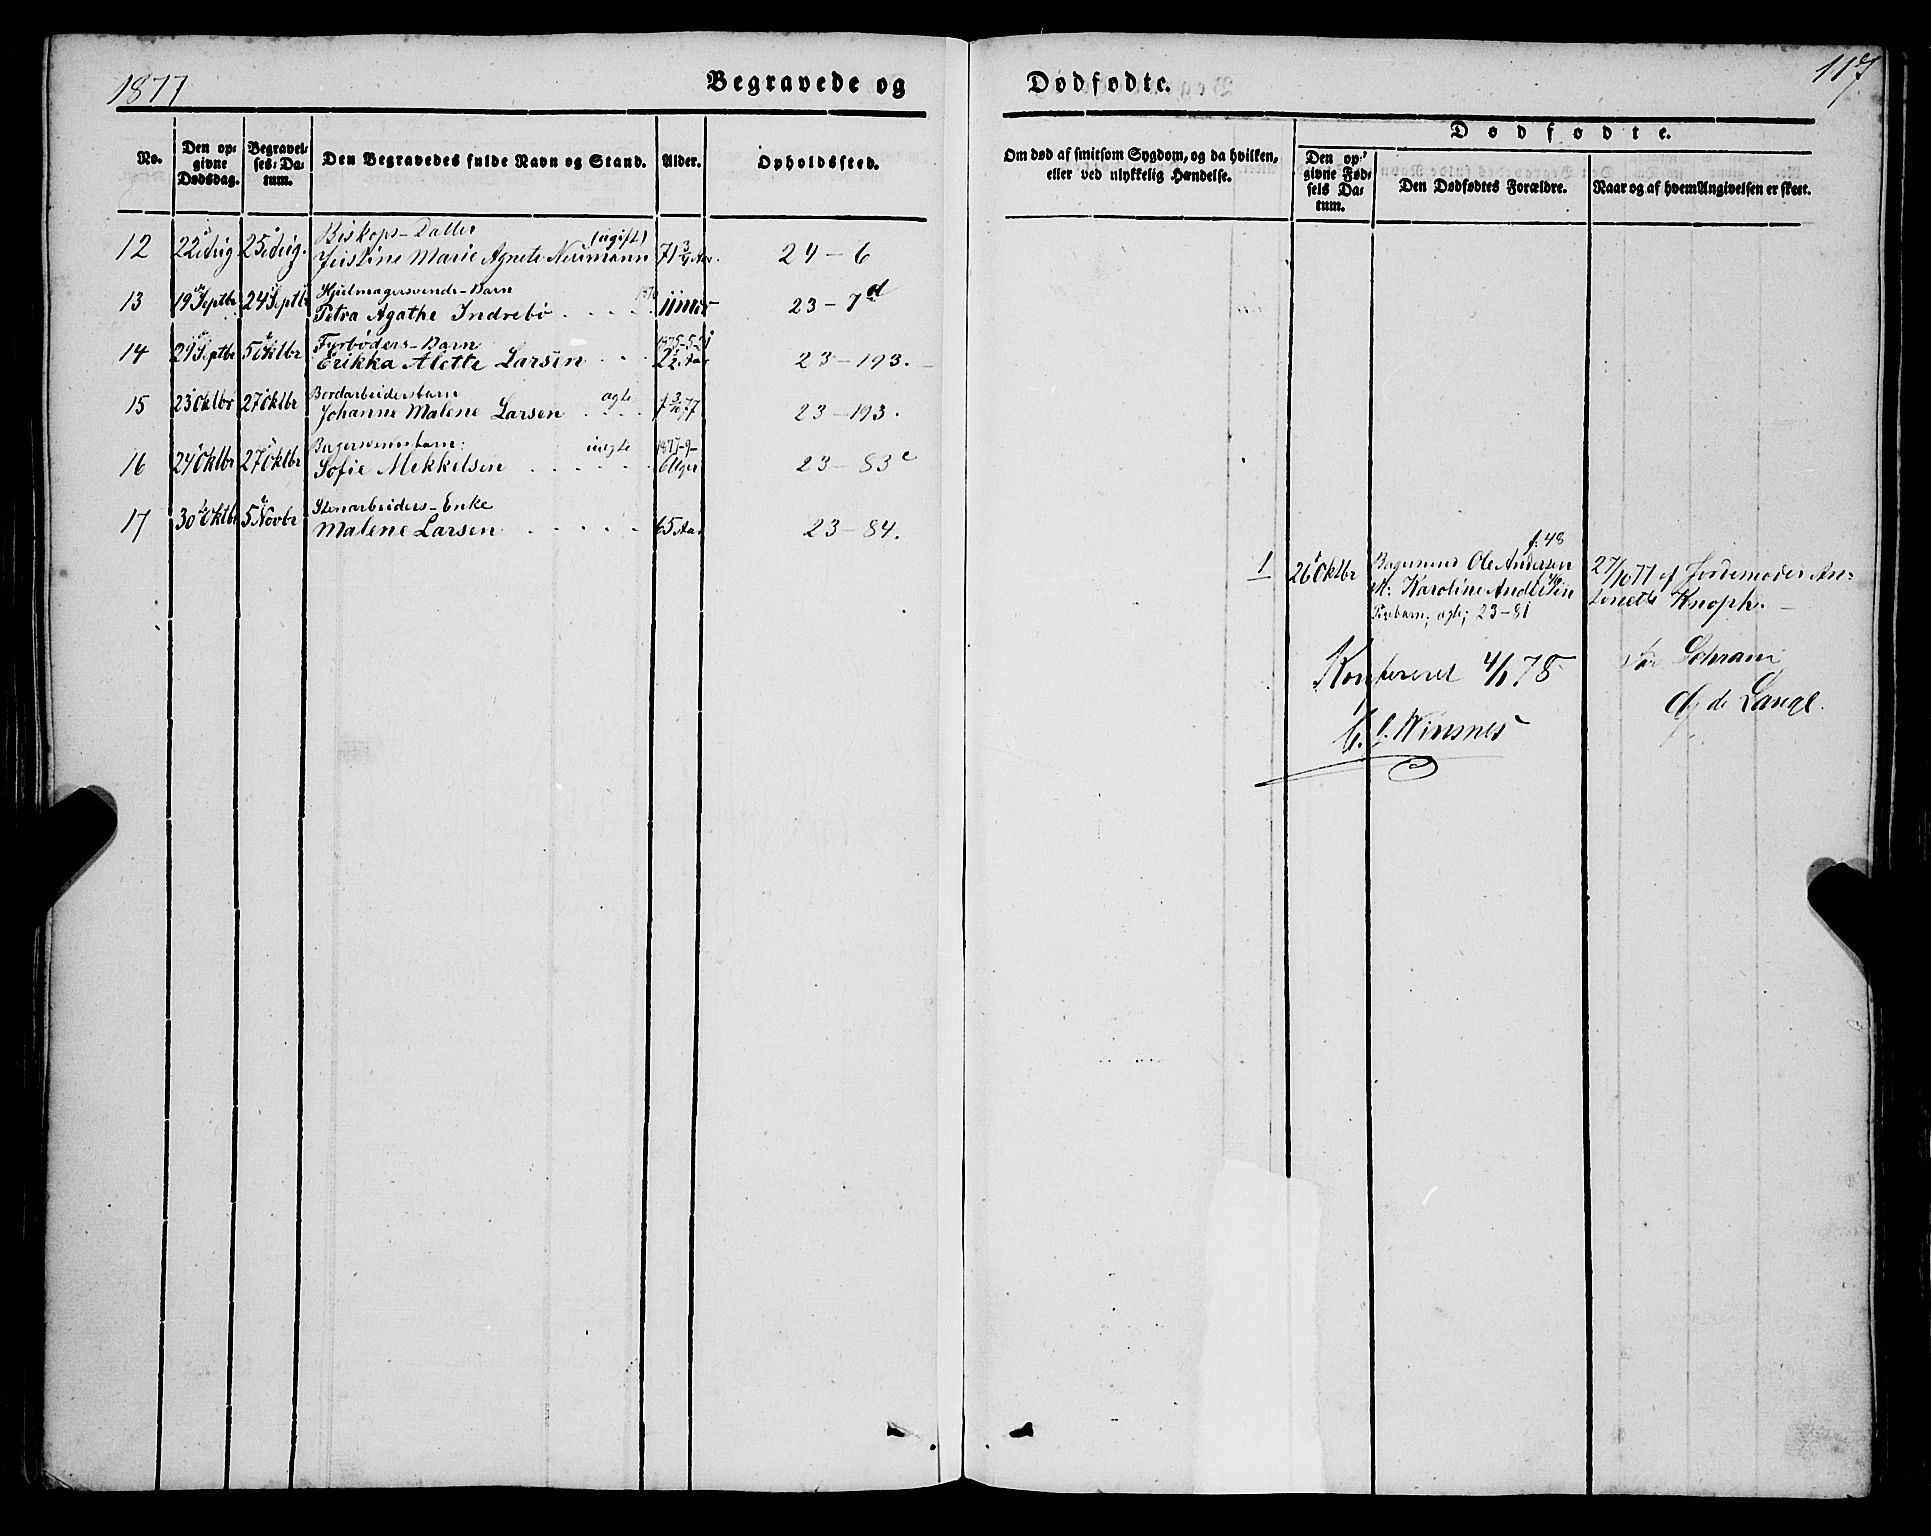 1877
Begravede og Dødfødte.
117.
No.
Den op-
givne
Dødsdag.
Begravel-
ses-Da-
tum.
Den Begravedes fulde Navn og Stand.
Alder.
Opholdssted.
Om død af smitsom Sygdom, og da hvilken,
eller ved ulykkelig Hændelse.
Dødfødte.
Den op-
givne Fød-
sels Da-
tum.
Den Dødfødtes Forældre.
Naar og af hvem Angivelsen er skeet.
Biskops-Datter (ugift)
12 22 Aug 25 Aug. Justine Marie Agnete Neumann 71 3/4 Aar. 24-6
Hjulmagersvends-Barn
13 19 Septbr 24 Septbr Petra Agathe Indrebø 11 Mdr 23-7d
Fyrbøders-Barn
14 29 Septbr 5 Oktbr Erikka Alette Larsen 2 1/2 Aar 23-193.
Bordarbeidersbarn ægte
15 23 Oktbr 27 Oktbr Johanne Malene Larsen 23-193.
uægte
16 24 Oktbr 27 Oktbr Sofie Mekkelsen 6 Uger 23-83c
Stenarbeiders-Enke
17 30 Oktbr 5 Novbr Malene Larsen 65 Aar 23-84.
f: 48
1 26 Oktbr Ole Andersen 27/10 77 af Jordemoder An-
M: Karoline Andersen
tonette Knoph.
ægte; 23-81
Konfereret 4/1 78
for Schram
de Lange.
Wisnes